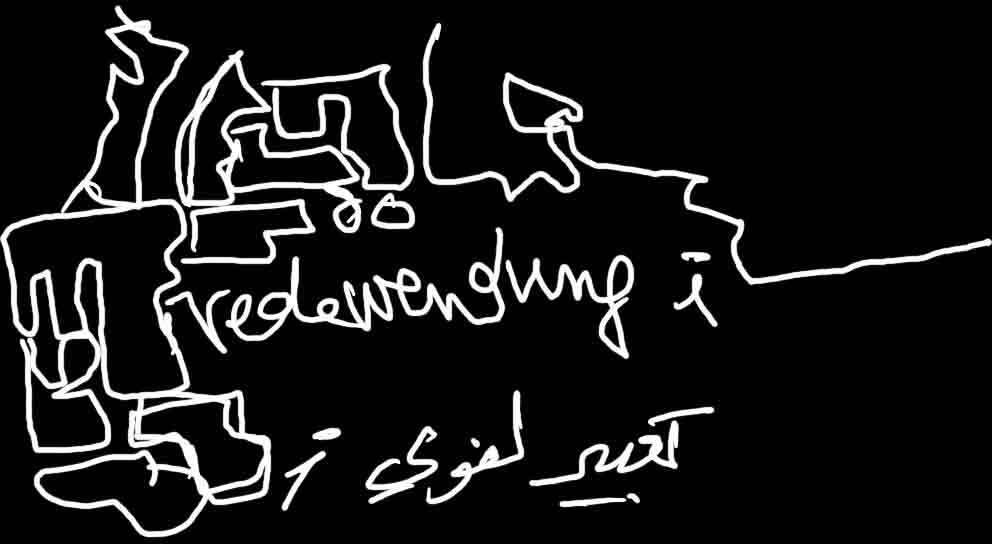 redewendung i
تعبير لغوي